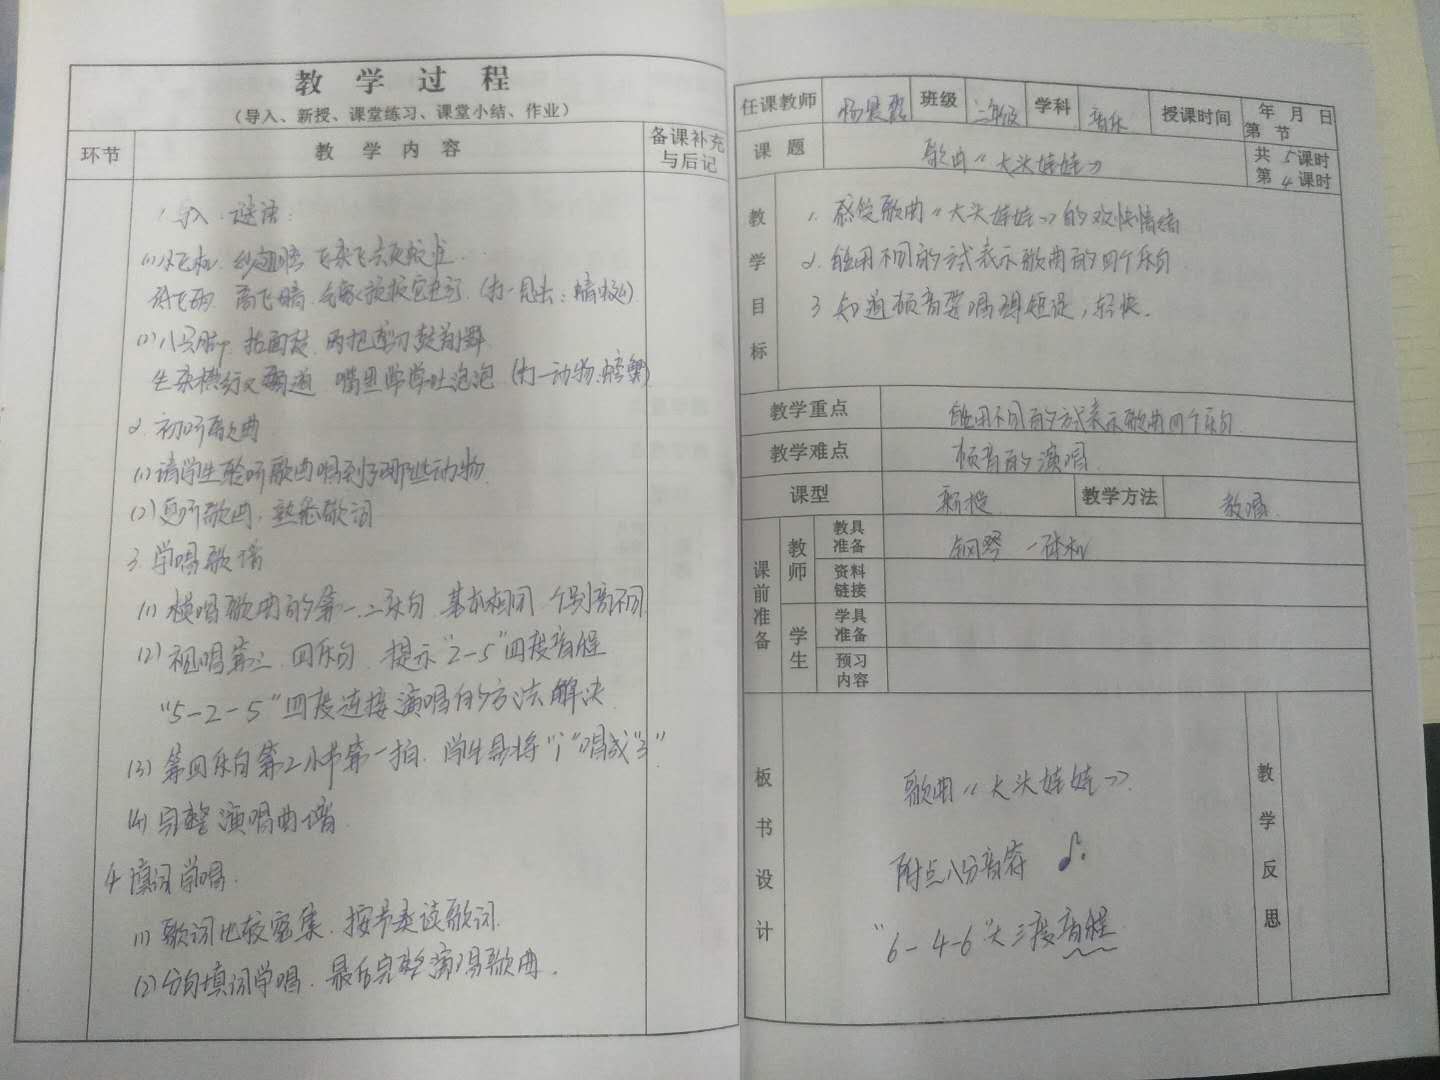 教 学 过 程
(导入、新授、课堂练习、课堂小结、作业)
环节
教 学 内 容
备课补充
与后记
1.导入 谜语:
(1)小飞机 纱翅膀 飞来飞去
(打一昆虫: 蜻蜓)
(2)八只脚 抬面鼓 两把剪刀鼓前舞
生来横行又霸道 嘴里常常吐泡泡 (打一动物:螃蟹)
2.初听歌曲
(1)请学生聆听歌曲唱到了哪些动物
(2)复听歌曲,熟悉歌词
3.学唱歌谱
(1)模唱歌曲的第一、二乐句,基本相同,个别音不同
(2)视唱第三、四乐句,提示"2-5"四度音程
"5-2-5"四度连接演唱的方法解决
(3)第四乐句第2小节第一拍,学生易将"i"唱成"3"
(4)完整演唱曲谱
4.填词学唱.
(1)歌词比较密集,按节奏读歌词.
(2)分句填词学唱,最后完整演唱歌曲.
任课教师
班级 三年级
学科 音乐
授课时间
年 月 日
第 节
课 题
歌曲《大头娃娃》
共 5 课时
第 4 课时
教学目标
1. 感受歌曲《大头娃娃》的欢快情绪
2. 能用不同的方式表示歌曲的四个乐句
3. 知道顿音要唱得短促,轻快.
教学重点
能用不同的方式表示歌曲四个乐句.
教学难点
顿音的演唱.
课型
新授
教学方法
教唱.
课前准备
教师
教具
准备
钢琴 一体机
资料
链接
学生
学具
准备
预习
内容
板书设计
歌曲《大头娃娃》
附点八分音符 ♪.
"6-4-6"大三度音程
教学反思